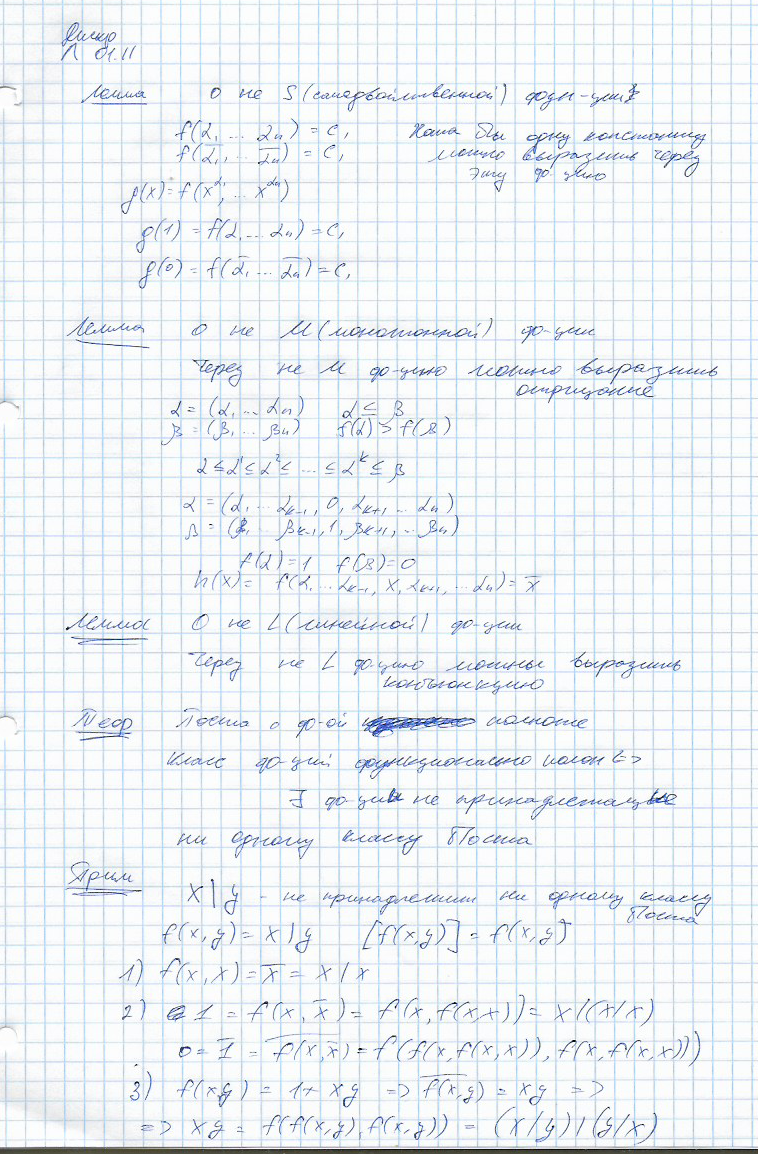 Дискр
Л 01.11
Лемма О не S (самодвойственной) фун-ции
f(α₁ ... αₙ) = C₁ Хотя бы одну константу
f(α̅₁, ... α̅ₙ) = C₁ можно выразить через
эту ф-цию
g(x) = f(x^α₁, ... x^αₙ)
g(1) = f(α₁ ... αₙ) = C₁
g(0) = f(α̅₁ ... α̅ₙ) = C₁
Лемма О не M (монотонной) ф-ции
Через не M ф-цию можно выразить
отрицание
α = (α₁ ... αₙ) α ≤ β
β = (β₁ ... βₙ) f(α) > f(β)
α ≤ α¹ ≤ α² ≤ ... ≤ αᵏ ≤ β
α = (α₁ ... αₖ₋₁, 0, αₖ₊₁ ... αₙ)
β = (β₁ ... βₖ₋₁, 1, βₖ₊₁, ... βₙ)
f(α) = 1 f(β) = 0
h(x) = f(α₁ ... αₖ₋₁, x, αₖ₊₁, ... αₙ) = x̅
Лемма О не L (линейной) ф-ции
Через не L ф-цию можны выразить
конъюнкцию
Теор Поста о ф-ой полноте
Класс ф-ций функционально полон <=>
∃ ф-ции не принадлежащие
ни одному классу Поста
Прим
X | y - не принадлежит ни одному классу
Поста
f(x,y) = x | y [f(x,y)] = f(x,y)
1) f(x,x) = x̅ = x / x
2) 1 = f(x, x̅) = f(x, f(x,x)) = x / (x/x)
0 = 1̅ = f̅(̅x̅,̅x̅)̅ = f(f(x, f(x,x)), f(x, f(x,x)))
3) f(xy) = 1 + xy => f̅(̅x̅,̅y̅)̅ = xy =>
=> xy = f(f(x,y), f(x,y)) = (x/y) / (y/x)